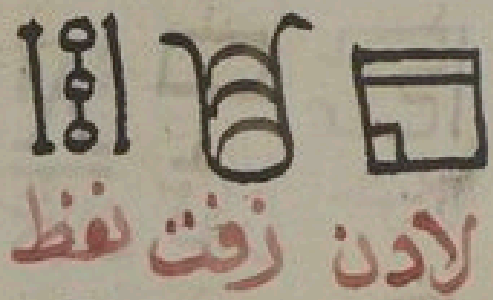 لادن زفت نفظ